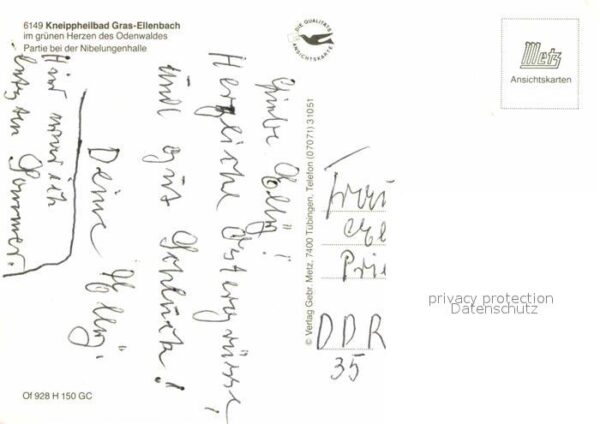 6149 Kneippheilbad Gras-Ellenbach
im grünen Herzen des Odenwaldes
Partie bei der Nibelungenhalle
DIE QUALITÄTS
ANSICHTSKARTE
Metz
Ansichtskarten
Liebe Elly!
Herzliche Ostergrüsse!
und gut Schluck!
Deine Elly.
Hier war ich
letzten Sommer.
© Verlag Gebr. Metz, 7400 Tübingen, Telefon (0 70 71) 3 10 51
Frau
Prie
DDR
35
privacy protection
Datenschutz
Of 928 H 150 GC